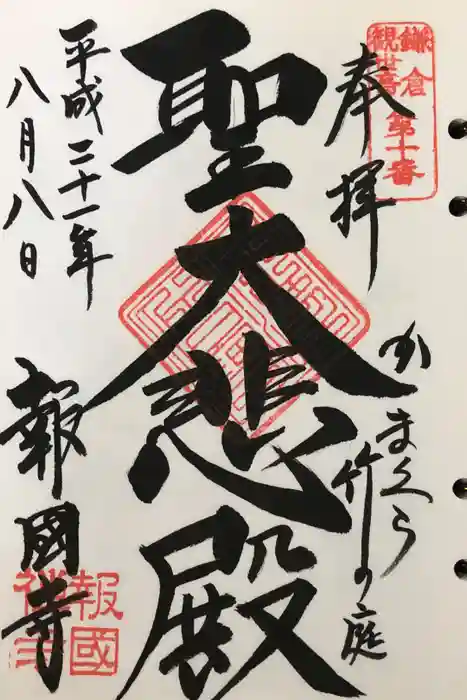 鎌倉
観世音
第十番
奉拝
かまくら
竹の庭
聖大悲殿
平成二十一年
八月八日
報國寺
報國